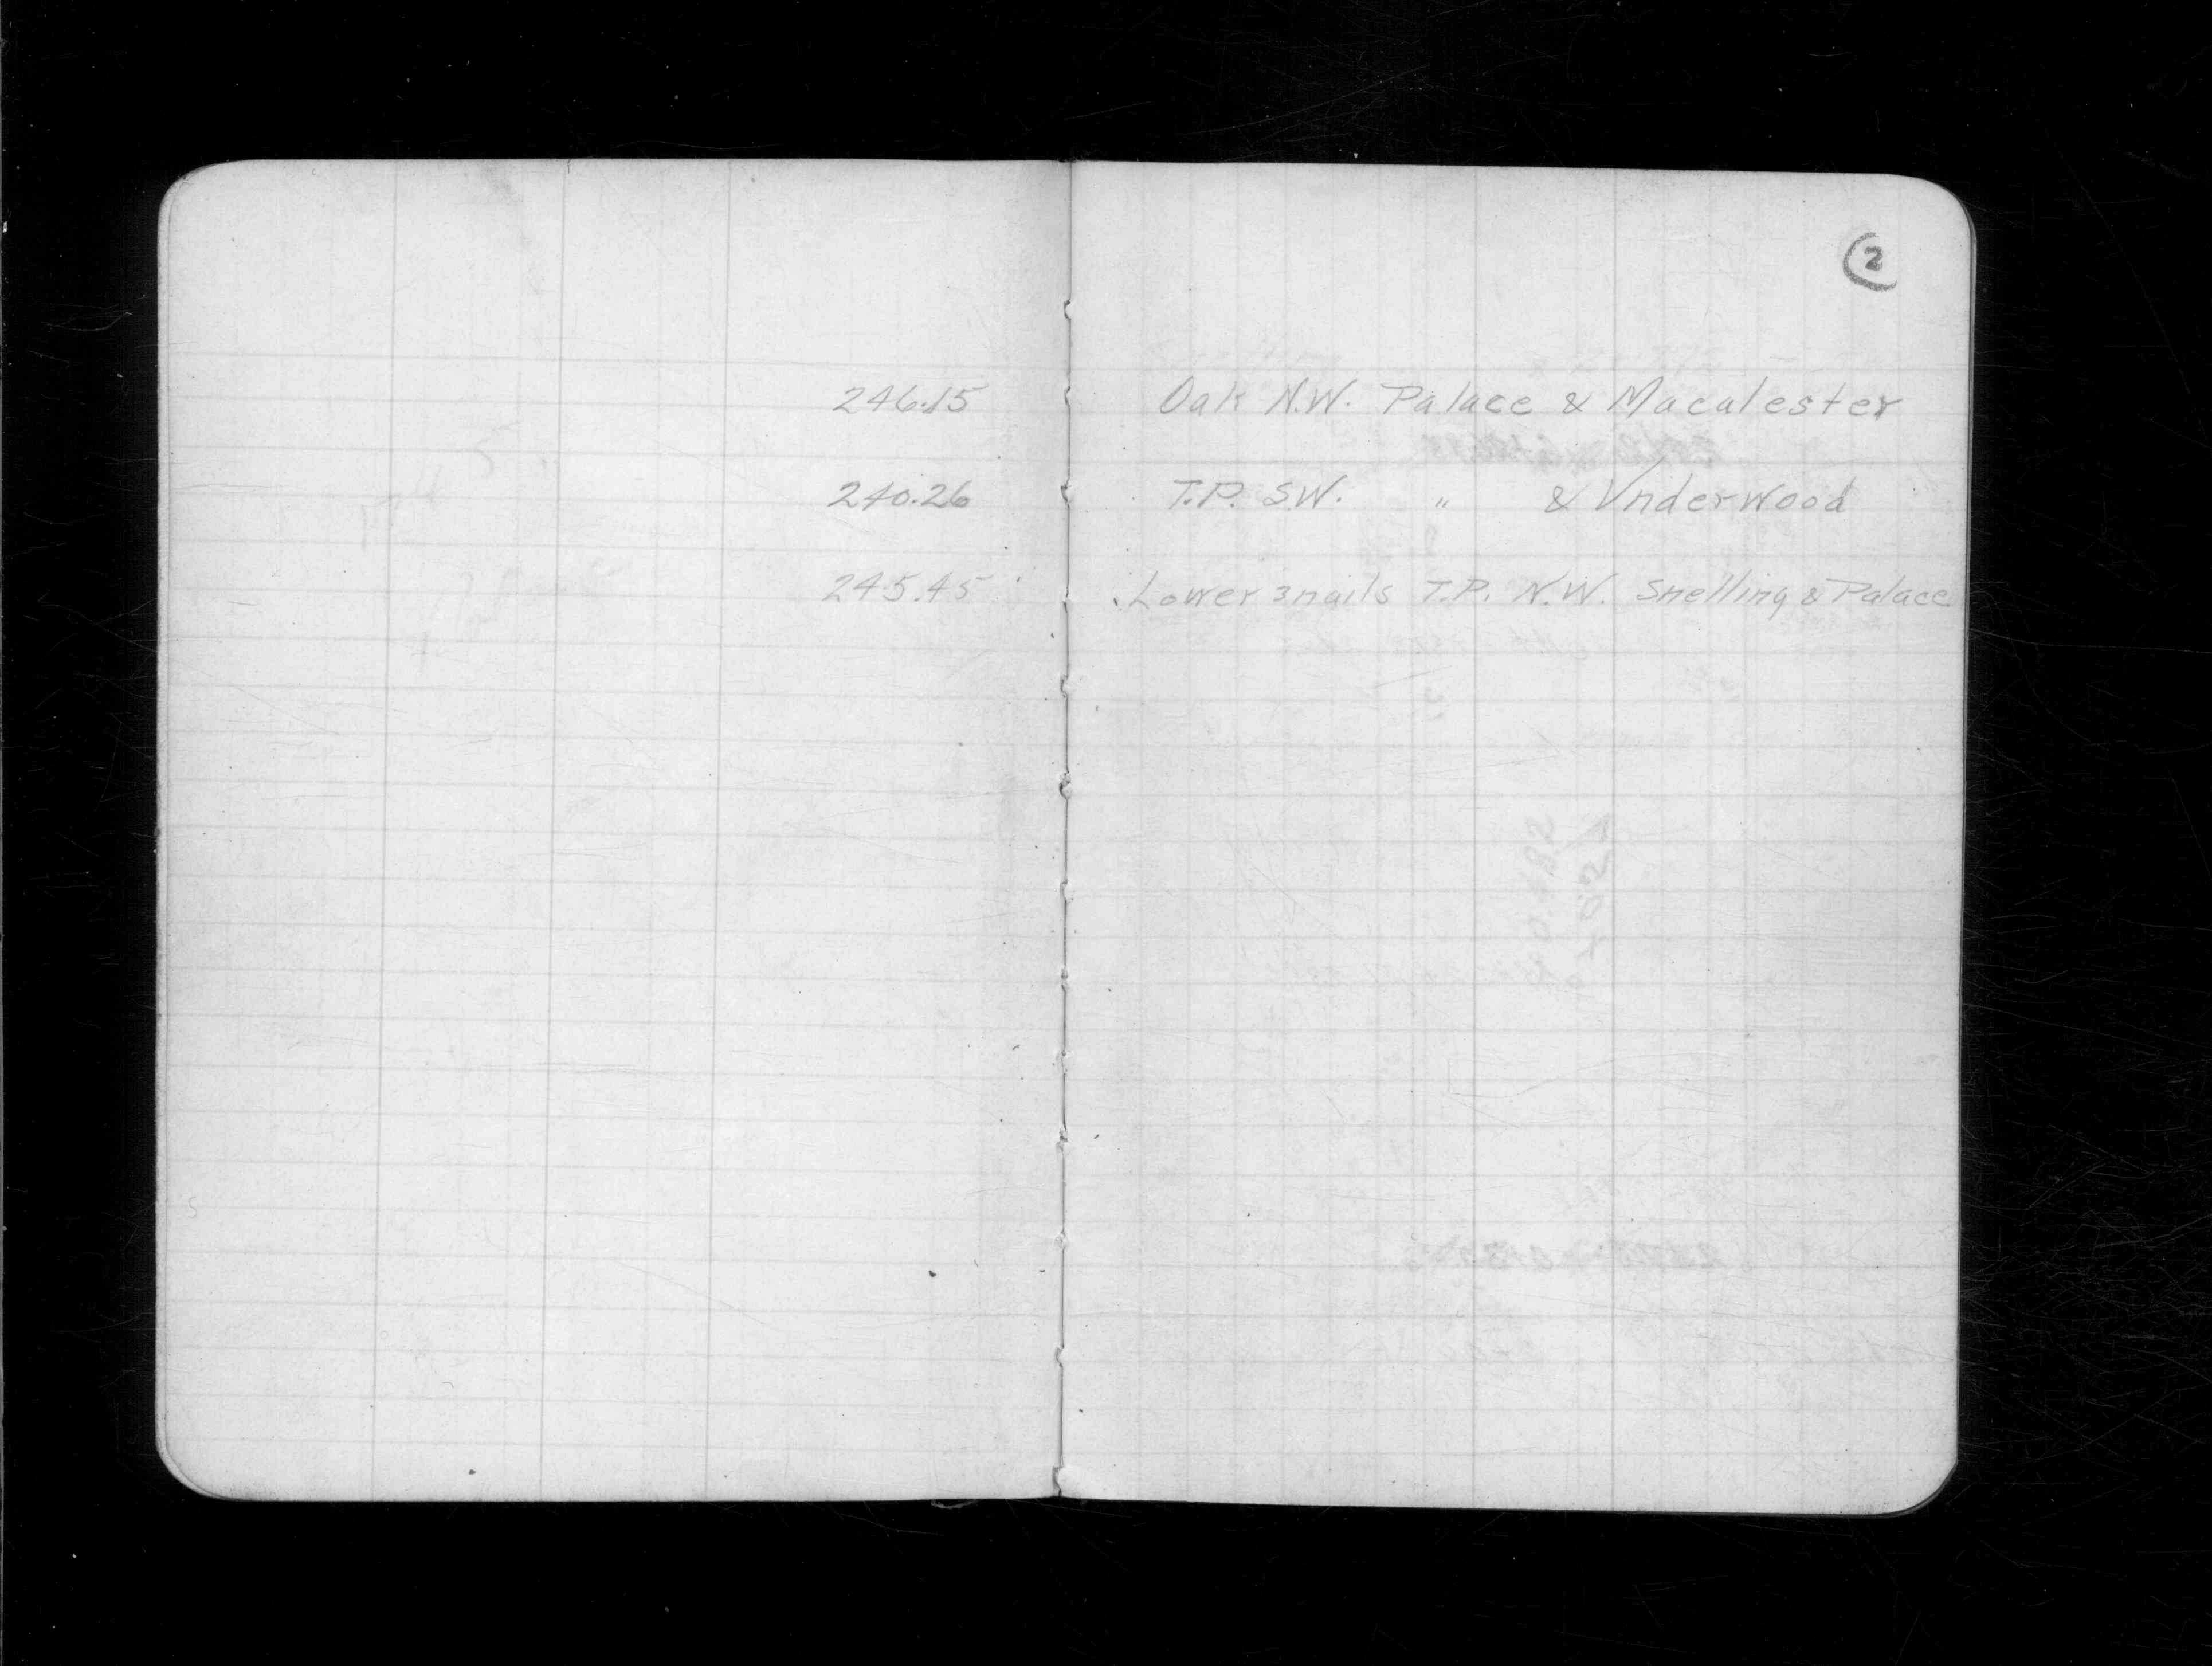 2
246.15 Oak N.W. Palace & Macalester
240.26 T.P. S.W. " & Underwood
245.45 Lower 3 nails T.P. N.W. Snelling & Palace